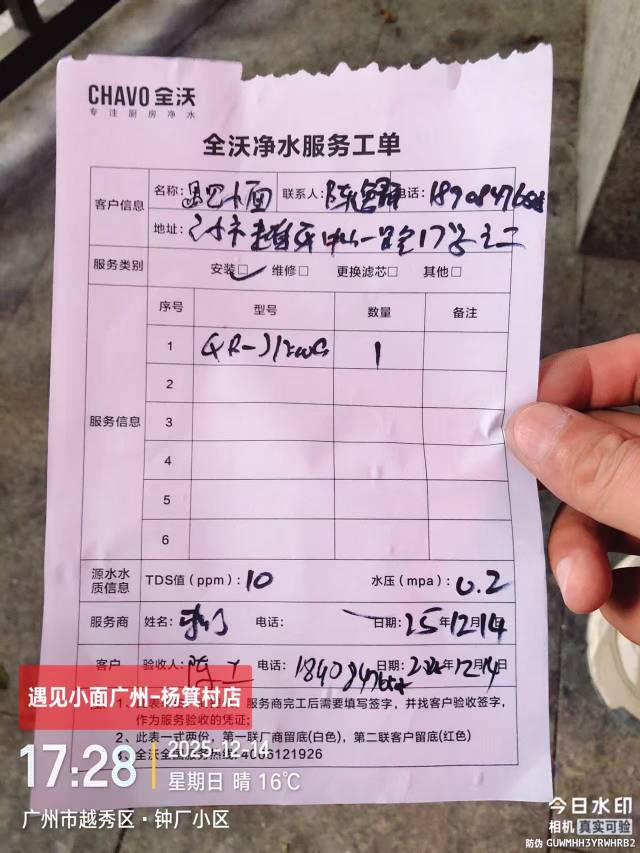 CHAVO 全沃
专注厨房净水
全沃净水服务工单
客户信息
名称: 遇见小面 联系人: 陈 电话:
地址:
服务类别 安装☑ 维修□ 更换滤芯□ 其他□
服务信息
序号 型号 数量 备注
1 1
2
3
4
5
6
源水水质信息 TDS值（ppm）: 10 水压（mpa）: 0.2
服务商 姓名: 电话: 日期: 25年12月14
客户 验收人: 陈 电话: 日期: 年12月14日
服务商完工后需要填写签字，并找客户验收签字，
作为服务验收的凭证;
2、此表一式两份，第一联厂商留底(白色)，第二联客户留底(红色)
遇见小面广州-杨箕村店
17:28
2025-12-14
星期日 晴 16℃
广州市越秀区·钟厂小区
今日水印
相机 真实可验
防伪 GUWMHH3YRWHRB2